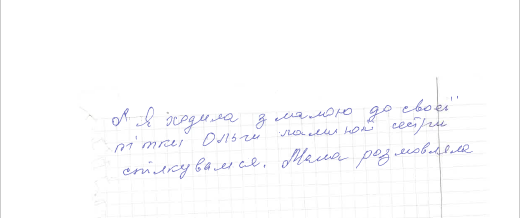 А я ходила з мамою до своєї
тітки Ольги маминої сестри
спілкувамся. Мама розмовляла